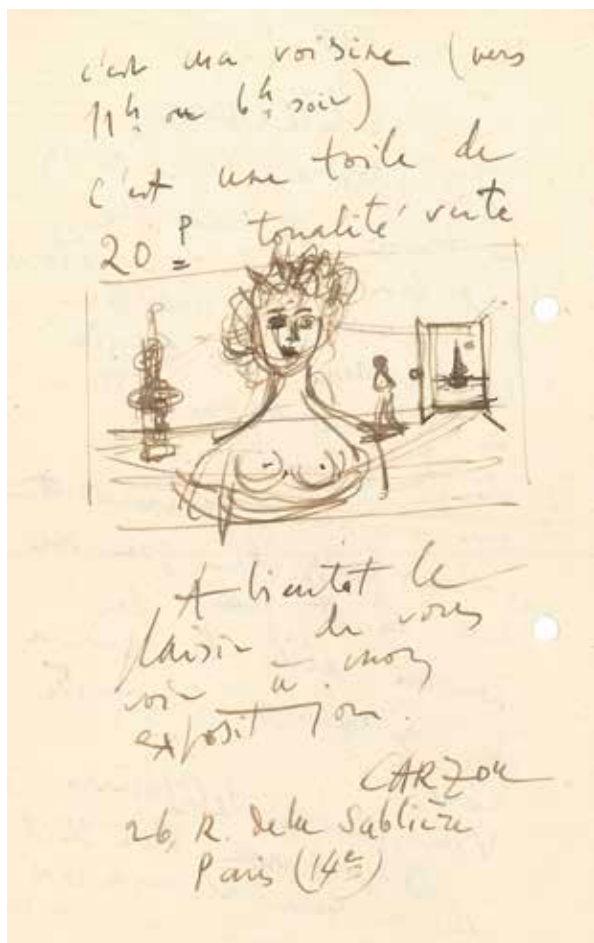 c'est ma voisine (vers
11h ou 6h soir)
c'est une toile de
20 P tonalité verte
A bientôt le
plaisir de vous
voir à mon
exposition.
CARZOU
26, R. de la Sablière
Paris (14e)